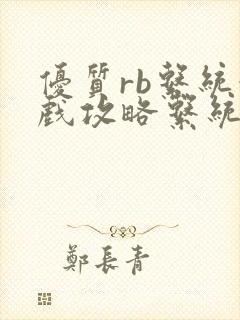 優質rb繫統
戲攻略繫統
鄭長青